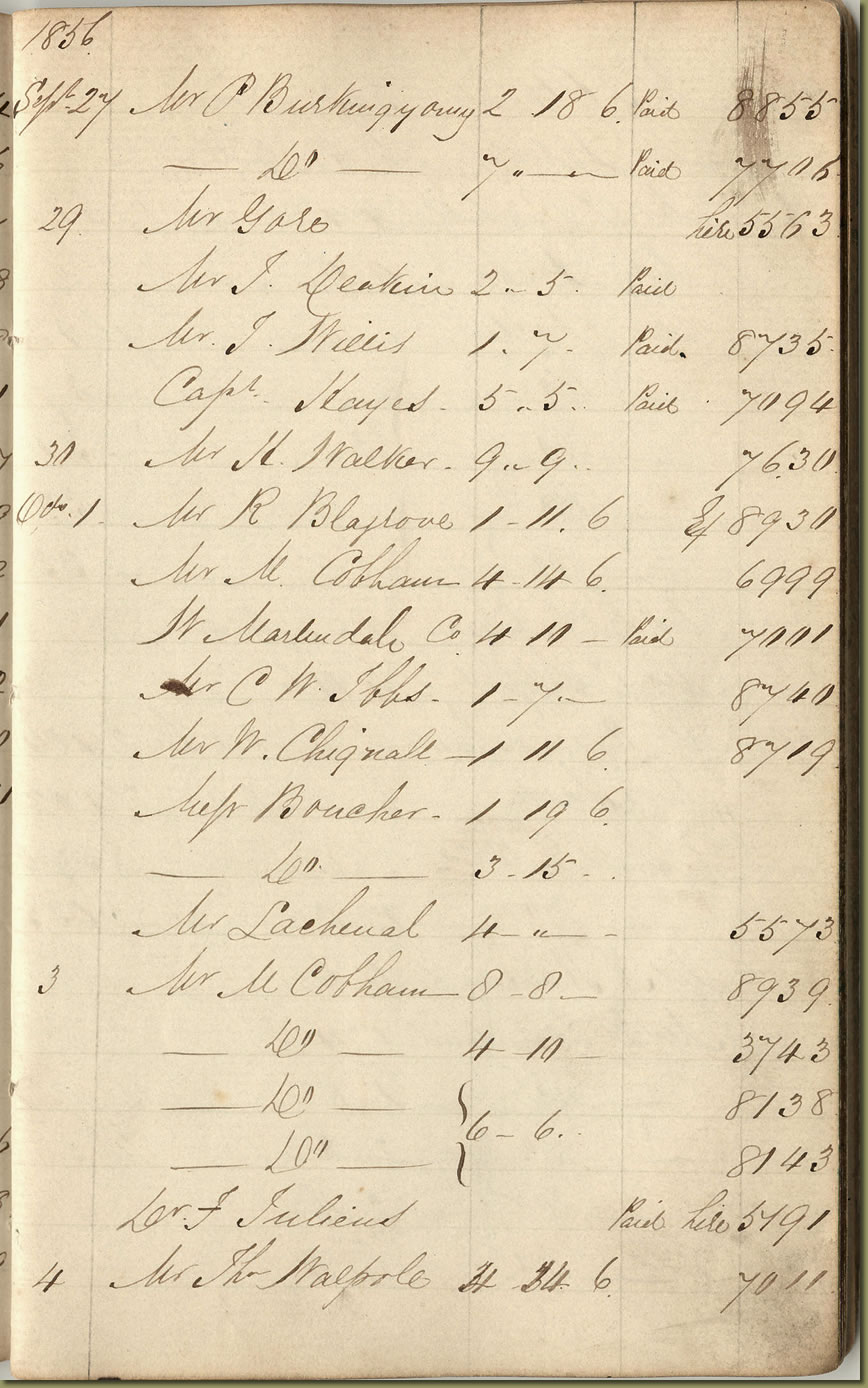 1856
Sept 27 Mr P Burkingyoung 2 18 6. Paid 8855
— Do — 7 " — Paid 7706
29. Mr Gore hire 5563
Mr J. Deakin 2 .. 5. Paid
Mr. J. Willis 1. 7. Paid. 8735
Capt. Hayes. 5 .. 5. Paid 7094
30 Mr H. Walker. 9 .. 9. 7630
Oct. 1. Mr R Blagrove 1 - 11. 6 8930
Mr M. Cobham 4 - 14 6. 6999
W Martindale Co 4 10 — Paid 7001
Mr C W. Ibbs. 1 - 7 — 8740
Mr W. Chignall — 1 11 6. 8719
Messr Boucher. 1 19 6.
— Do. — 3 - 15 - .
Mr Lachenal 4 — " — 5573
3 Mr M Cobham — 8 - 8 — 8939
— Do — 4 - 10 — 3743
— Do — 8138
6 - 6.
— Do — 8143
Dr. F Juliens Paid hire 5191
4 Mr Thos Walpole 6. 7011